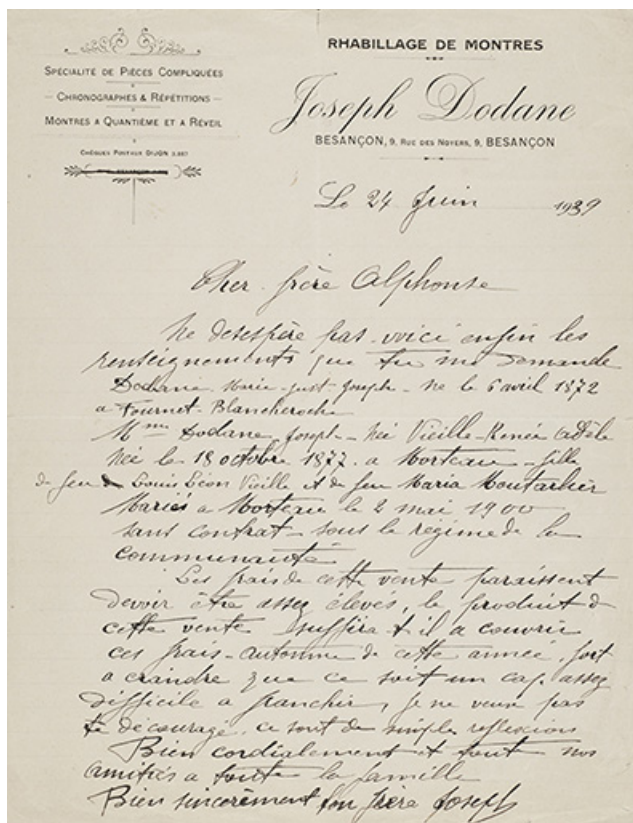 SPÉCIALITÉ DE PIÈCES COMPLIQUÉES
CHRONOGRAPHES & RÉPÉTITIONS
MONTRES A QUANTIÈME ET A RÉVEIL
CHÈQUES POSTAUX DIJON
RHABILLAGE DE MONTRES
Joseph Dodane
BESANÇON, 9, RUE DES NOYERS, 9, BESANÇON
Le 24 Juin 1939
Cher frère Alphonse
Ne desespère pas voici enfin les
renseignements que tu me demande
Dodane Marie-Just-Joseph - né le 6 avril 1872
a Fournet-Blancheroche
Mme Dodane Joseph - Née Vieille-Renée Adèle
Née le 18 octobre 1877 a Morteau - fille
de feu Louis Léon Vieille et de feu Maria
Mariés a Morteau le 2 mai 1900
sans contrat - sous le régime de la
communauté
Les frais de cette vente paraissent
devoir être assez élevés, le produit de
cette vente suffira t il a couvrir
ces frais - automne de cette année, fort
a craindre que ce soit un cap assez
difficile a franchir, je ne veux pas
te décourage, ce sont de simple reflexions
Bien cordialement et tout nos
amitiés a toute la famille
Bien sincèrement ton frère Joseph